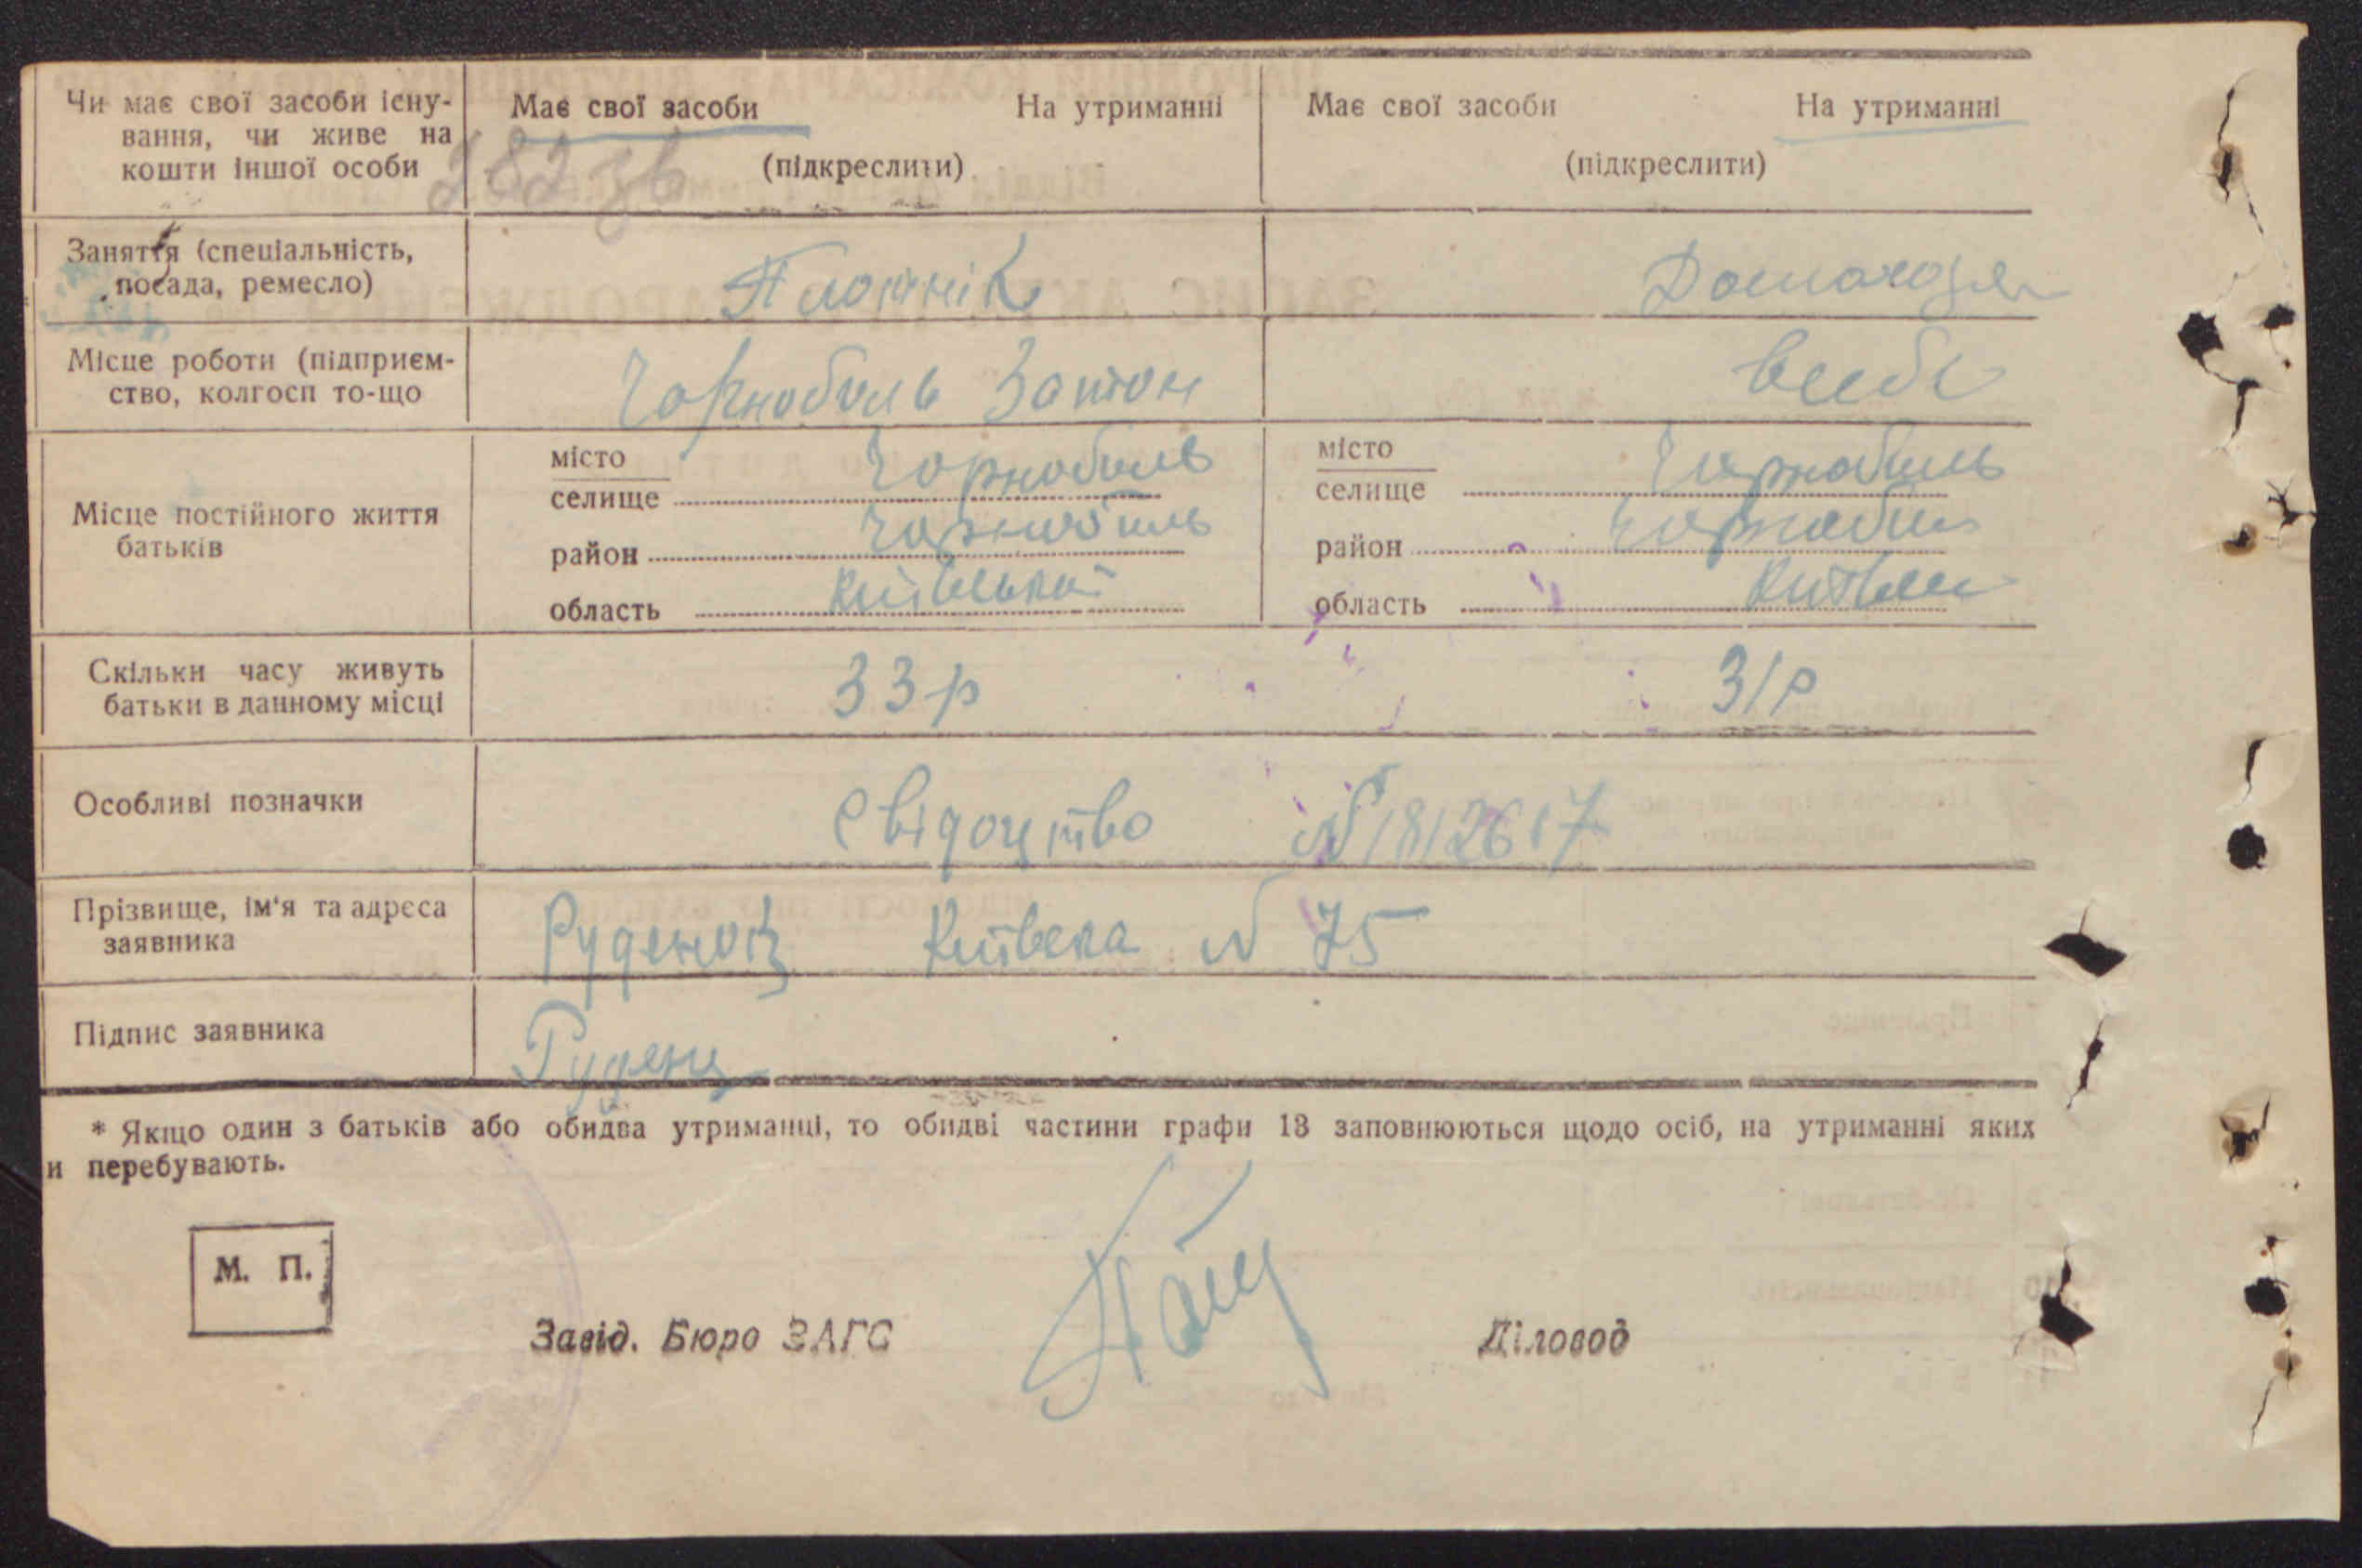 Чи має свої засоби існу-
вання, чи живе на
кошти іншої особи
Має свої засоби На утриманні
(підкреслити)
Має свої засоби На утриманні
(підкреслити)
Заняття (спеціальність,
посада, ремесло)
Плотнік
Домохозя
Місце роботи (підприєм-
ство, колгосп то-що
Чорнобиль Затон
Місце постійного життя
батьків
місто
селище Чорнобиль
район Чорнобиль
область Київська
місто
селище Чорнобиль
район Чорнобил
область
Скільки часу живуть
батьки в данному місці
33 р
31 р
Особливі позначки
Свідоцтво № 1812617
Прізвище, ім'я та адреса
заявника
Київська № 75
Підпис заявника
* Якщо один з батьків або обидва утриманці, то обидві частини графи 13 заповнюються щодо осіб, на утриманні яких
и перебувають.
М. П.
Завід. Бюро ЗАГС
Діловод